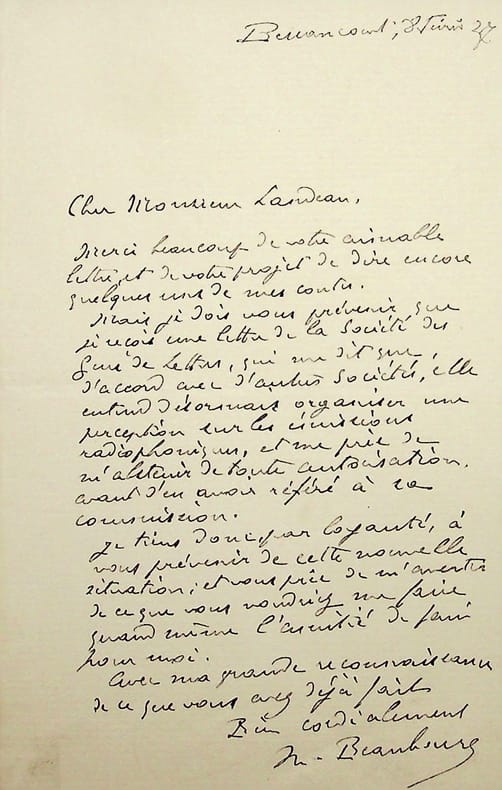 Bessancourt, 8 Févr 27
Cher Monsieur Landeau,
Merci beaucoup de votre aimable
lettre, et de votre projet de dire encore
quelques uns de mes contes.
Mais je dois vous prévenir que
je reçois une lettre de la Société des
Gens de Lettres, qui me dit que,
d'accord avec d'autres Sociétés, elle
entend désormais organiser une
perception sur les émissions
radiophoniques, et me prie de
m'abstenir de toute autorisation,
avant d'en avoir référé à sa
commission.
Je tiens donc par loyauté, à
vous prévenir de cette nouvelle
situation, et vous prie de m'avertir
de ce que vous voudriez me faire
quand même l'amitié de faire
pour moi.
Avec ma grande reconnaissance
de ce que vous avez déjà fait
Bien cordialement
M. Beaubourg